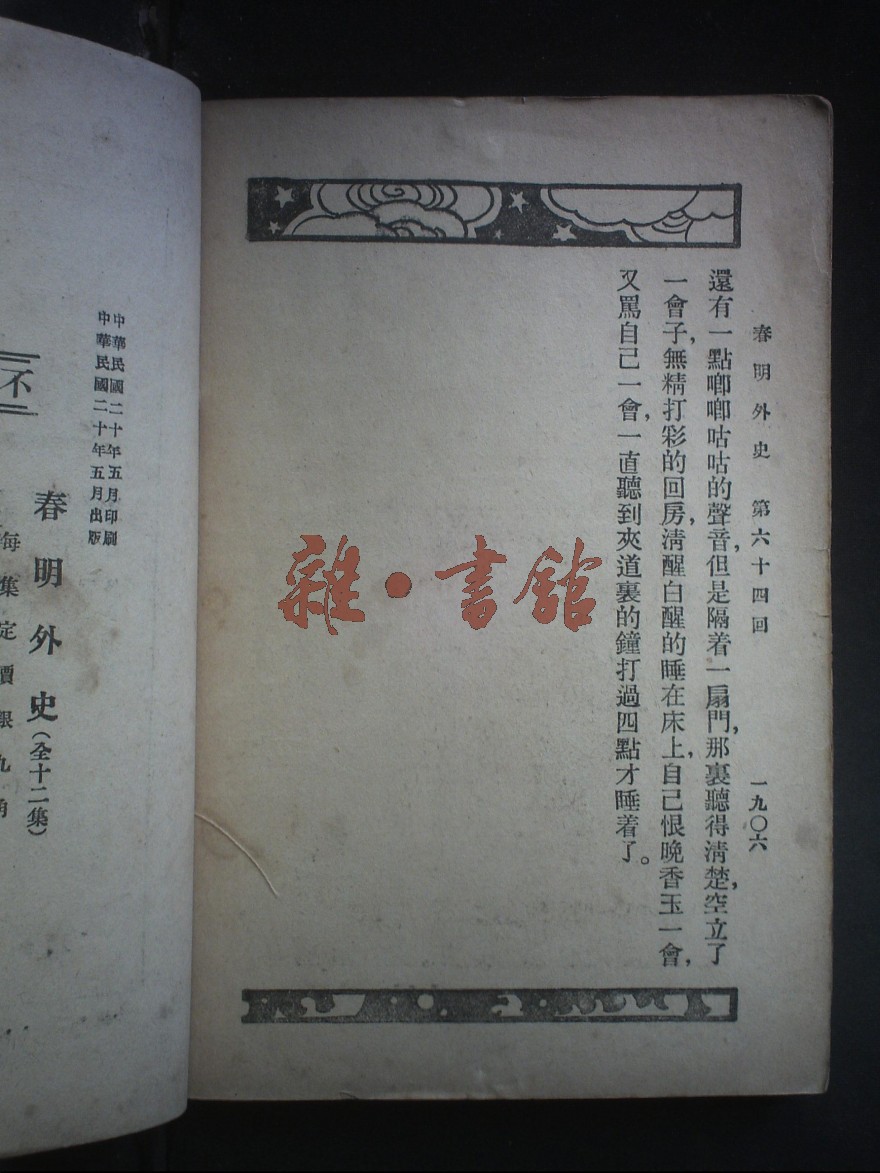 春明外史　第六十四回　一九〇六
還有一點啷啷咕咕的聲音，但是隔着一扇門，那裏聽得清楚，空立了
一會子，無精打彩的回房，清醒白醒的睡在床上，自己恨晚香玉一會，
又罵自己一會，一直聽到夾道裏的鐘打過四點才睡着了。
雜·書館
中華民國二十年五月印刷
中華民國二十年五月出版
不
春明外史（全十二集）
每集定價銀九角